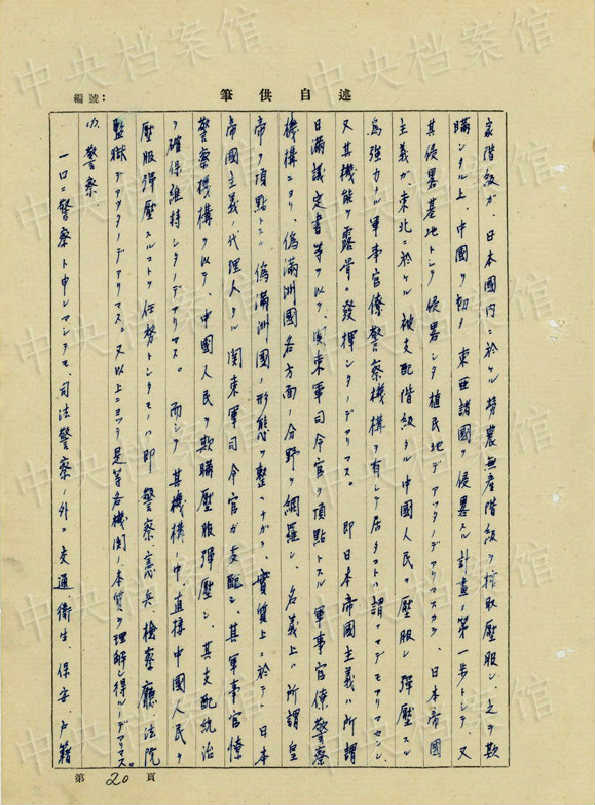 筆供自述
編號：
家階級ガ、日本國内ニ於ケル勞農無産階級ヲ搾取壓服シ、之ヲ欺
瞞シタル上、中國ヲ初メ東亜諸國ヲ侵畧スル計畫ノ第一歩トシテ、又
其侵畧基地トシテ侵畧シタ植民地デアッタノデアリマスカラ、日本帝國
主義ガ、東北ニ於ケル被支配階級タル中國人民ヲ壓服シ彈壓スル
為強力ナル軍事官僚警察機構ヲ有シテ居タコトハ謂フマデモアリマセンシ、
又其機能ヲ露骨ニ發揮シタノデアリマス。即日本帝國主義ハ所謂
日滿議定書等ヲ以テ、関東軍司令官ヲ頂點トスル軍事官僚警察
機構ニヨリ、偽滿洲國各方面ノ分野ヲ網羅シ、名義上ハ所謂皇
帝ヲ頂點トシタ偽滿洲國ノ形態ヲ整ヘナガラ、實質上ニ於テハ日本
帝國主義ノ代理人タル関東軍司令官ガ支配シ、其軍事官僚
警察機構ヲ以テ、中國人民ヲ欺瞞壓服彈壓シ、其支配統治
ヲ確保維持シタノデアリマス。而シテ其機構ノ中、直接中國人民ヲ
壓服彈壓スルコトヲ任務トシタモノハ即警察、憲兵、檢察廳、法院
監獄デアッタノデアリマス。又以上ニヨッテ是等各機関ノ本質ヲ理解シ得ルノデアリマス。
警察、
一口ニ警察ト申シマシテモ、司法警察ノ外ニ交通、衛生、保安、戸籍
第20頁
中央档案馆